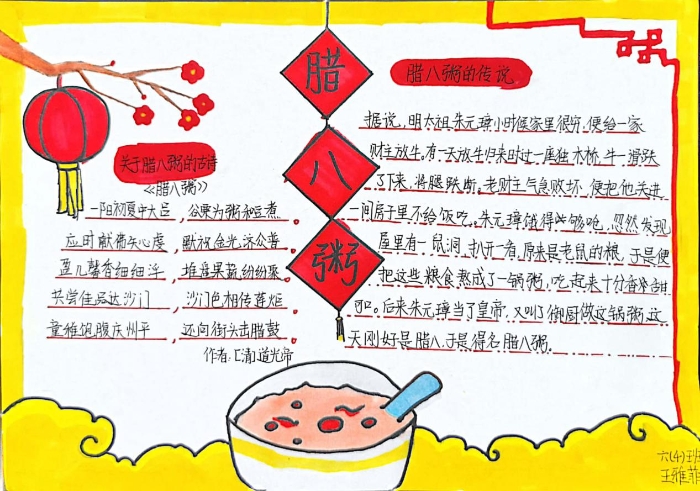 腊
八
粥
关于腊八粥的古诗
《腊八粥》
一阳初夏中大吕，谷粟为粥和豆煮。
应时献佛矢心虔，默祝金光济众普。
盈几馨香细细浮，堆盘果蔬纷纷聚。
共尝佳品达沙门，沙门色相传莲炬。
童稚饱腹庆州平，还向街头击腊鼓
作者：[清]道光帝
腊八粥的传说
据说，明太祖朱元璋小时候家里很穷，便给一家
财主放牛。有一天放牛归来时过一座独木桥，牛一滑跌
了下来，将腿跌断。老财主气急败坏，便把他关进
一间房子里不给饭吃。朱元璋饿得够呛，忽然发现
屋里有一鼠洞，扒开一看，原来是老鼠的粮，于是便
把这些粮食熬成了一锅粥，吃起来十分香冷甜
可口。后来朱元璋当了皇帝，又叫了御厨做这锅粥，这
天刚好是腊八，于是得名腊八粥。
六(4)班
王雅菲